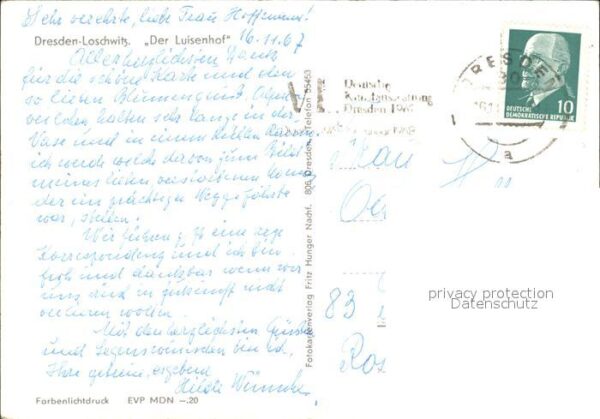 Sehr verehrte, liebe Frau Hoffmann!
Dresden-Loschwitz. „Der Luisenhof"
16.11.67
Allerherzlichsten Dank
für die schöne Karte und den
so lieben Blumengruß.
halten sehr lange in der
Vase und in einem hellen
ich werde welche davon zum Bild
meines lieben verstorbenen
der ein prächtiger Weggefährte
war, stellen.
Wir führen ja so eine rege
Korrespondenz und ich bin
froh und dankbar wenn wir
uns auch in Zukunft nicht
verlieren wollen.
Mit den herzlichsten Grüßen
und Segenswünschen bin ich
Ihre getreue, ergebene
Hilde
Farbenlichtdruck EVP MDN —.20
Fotokartenverlag Fritz Hunger Nachf. 806 Dresden, Telefon 55453
Deutsche
Kunstausstellung
Dresden 1967
DRESDEN
a
10
DEUTSCHE
DEMOKRATISCHE REPUBLIK
Frau
H
83
privacy protection
Datenschutz